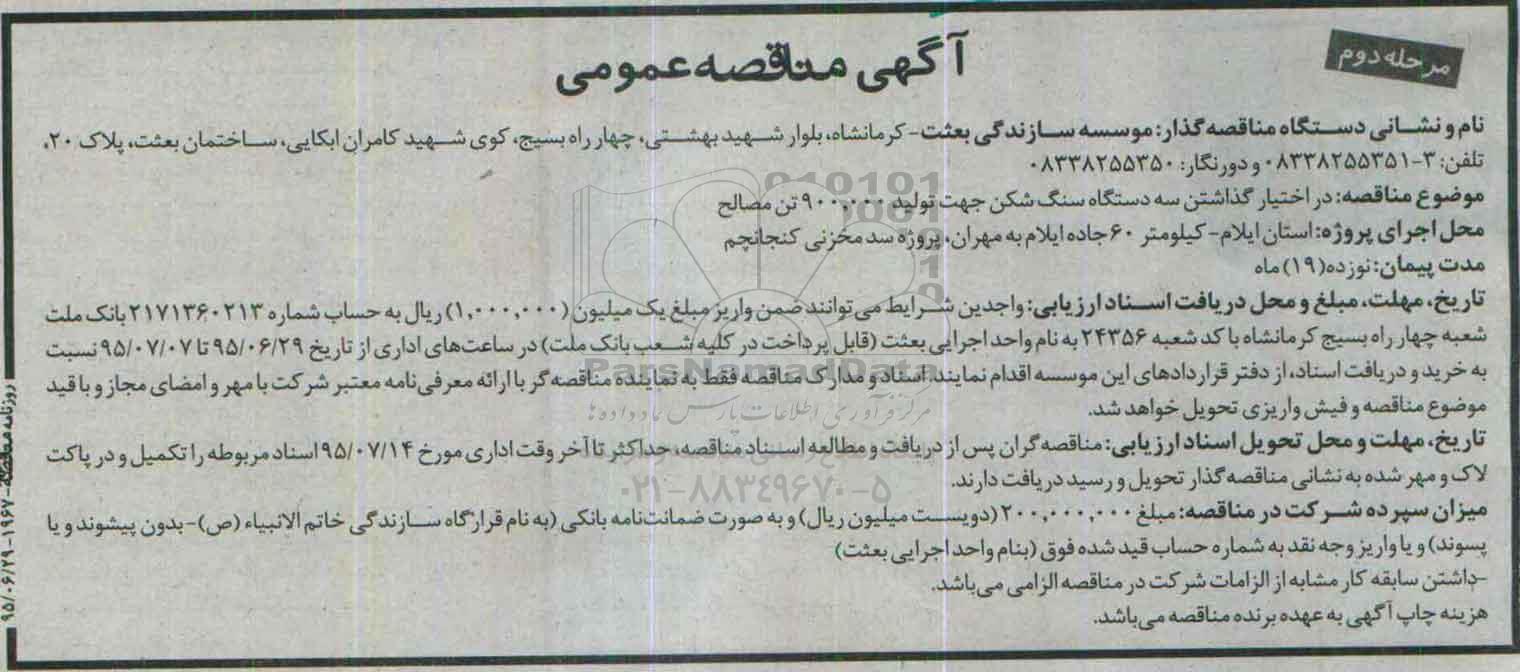 مرحله دوم
آگهی مناقصه عمومی
نام و نشانی دستگاه مناقصه گذار: موسسه سازندگی بعثت - کرمانشاه، بلوار شهید بهشتی، چهار راه بسیج، کوی شهید کامران ابکایی، ساختمان بعثت، پلاک ۲۰،
تلفن: ۳-۰۸۳۳۸۲۵۵۳۵۱ و دورنگار: ۰۸۳۳۸۲۵۵۳۵۰
موضوع مناقصه: در اختیار گذاشتن سه دستگاه سنگ شکن جهت تولید ۹۰۰,۰۰۰ تن مصالح
محل اجرای پروژه: استان ایلام - کیلومتر ۶۰ جاده ایلام به مهران، پروژه سد مخزنی کنجانچم
مدت پیمان: نوزده (۱۹) ماه
تاریخ، مهلت، مبلغ و محل دریافت اسناد ارزیابی: واجدین شرایط می توانند ضمن واریز مبلغ یک میلیون (۱,۰۰۰,۰۰۰) ریال به حساب شماره ۲۱۷۱۳۶۰۲۱۳ بانک ملت
شعبه چهار راه بسیج کرمانشاه با کد شعبه ۲۴۳۵۶ به نام واحد اجرایی بعثت (قابل پرداخت در کلیه شعب بانک ملت) در ساعت‌های اداری از تاریخ ۹۵/۰۶/۲۹ تا ۹۵/۰۷/۰۷ نسبت
به خرید و دریافت اسناد، از دفتر قراردادهای این موسسه اقدام نمایند. اسناد و مدارک مناقصه فقط به نماینده مناقصه گر با ارائه معرفی نامه معتبر شرکت با مهر و امضای مجاز و با قید
موضوع مناقصه و فیش واریزی تحویل خواهد شد.
تاریخ، مهلت و محل تحویل اسناد ارزیابی: مناقصه گران پس از دریافت و مطالعه اسناد مناقصه، حداکثر تا آخر وقت اداری مورخ ۹۵/۰۷/۱۴ اسناد مربوطه را تکمیل و در پاکت
لاک و مهر شده به نشانی مناقصه گذار تحویل و رسید دریافت دارند.
میزان سپرده شرکت در مناقصه: مبلغ ۲۰۰,۰۰۰,۰۰۰ (دویست میلیون ریال) و به صورت ضمانت نامه بانکی (به نام قرارگاه سازندگی خاتم الانبیاء (ص) - بدون پیشوند و یا
پسوند) و یا واریز وجه نقد به شماره حساب قید شده فوق (بنام واحد اجرایی بعثت)
-داشتن سابقه کار مشابه از الزامات شرکت در مناقصه الزامی می باشد.
هزینه چاپ آگهی به عهده برنده مناقصه می باشد.
روزنامه مناقصه - ۱۹۶۷ - ۹۵/۰۶/۲۹
ParsNamadData
مرکز فرآوری اطلاعات پارس نماد داده ها
۰۲۱-۸۸۳۴۹۶۷۰-۵